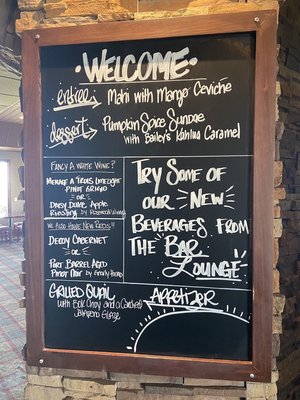 WELCOME
entree Mahi with Mango Ceviche
dessert Pumpkin Spice Sundae
with Bailey's Kahlua Caramel
FANCY A WHITE WINE?
MENAGE A TROIS LIMELIGHT
PINOT GRIGIO
OR
Apple
Riesling by
WE ALSO HAVE NEW REDS!!
DECOY CABERNET
OR
PORT BARREL AGED
PINOT NOIR by Gnarly Head
TRY SOME OF
OUR NEW
BEVERAGES FROM
THE BAR
LOUNGE
GRILLED QUAIL
with Bok Choy and a Candied
Jalapeno Glaze
APPETIZER